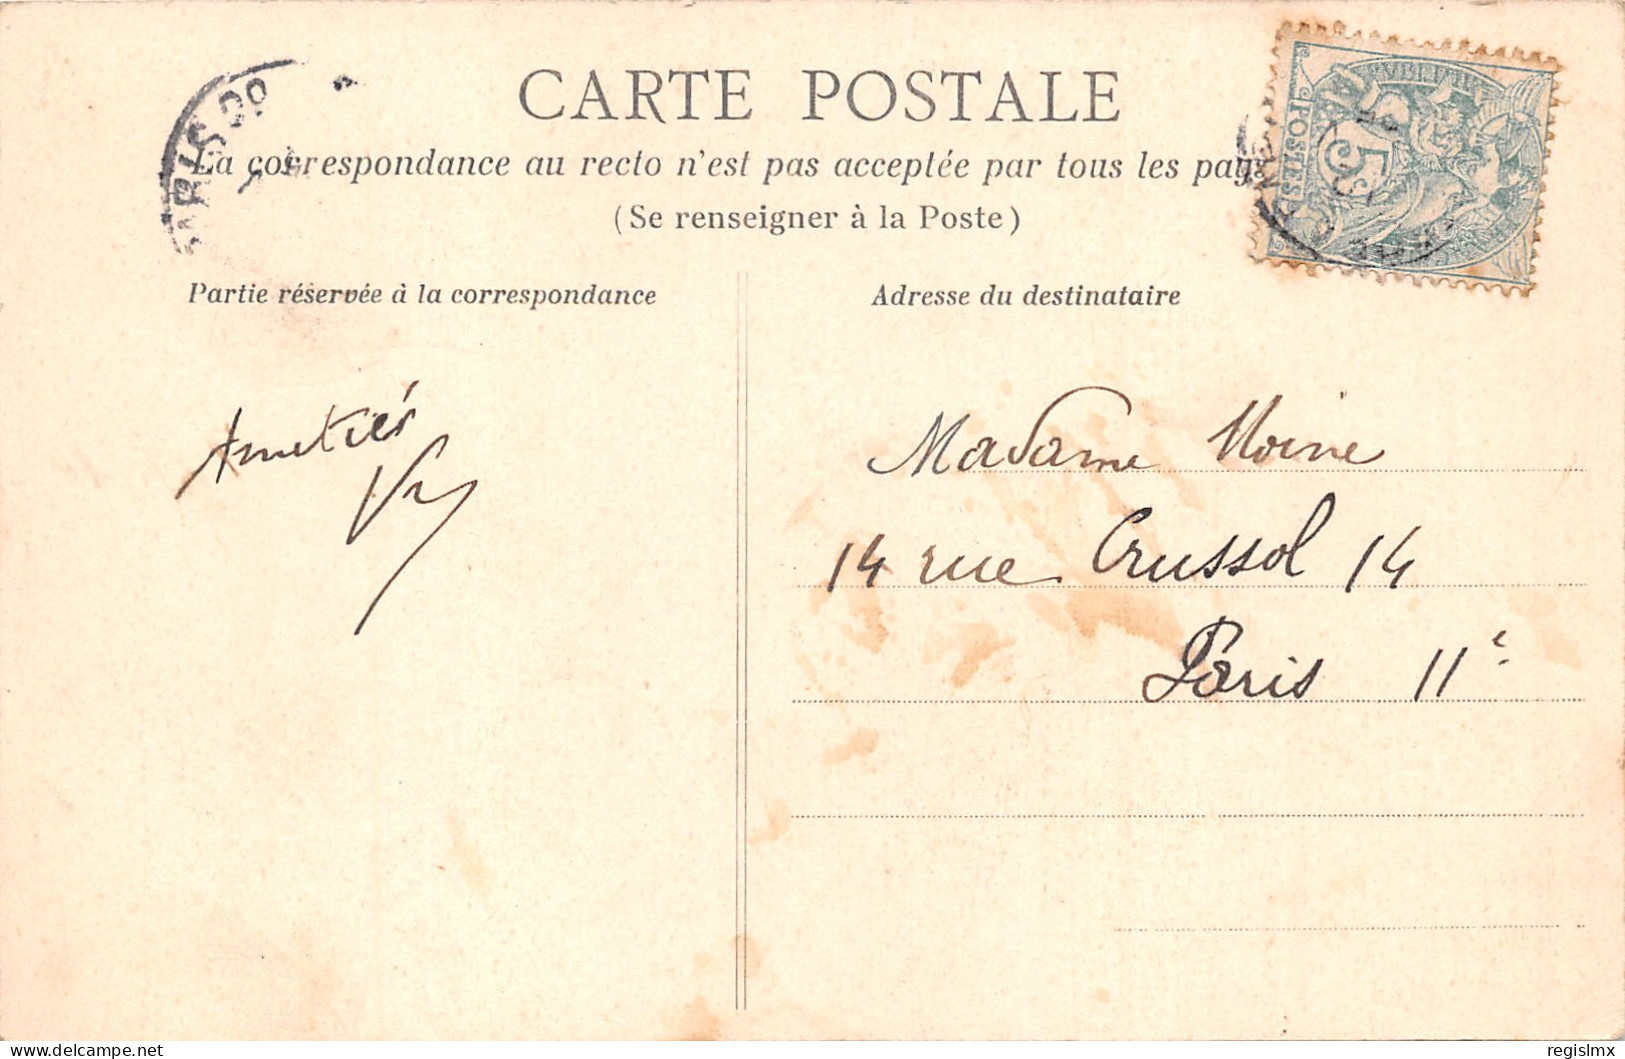 CARTE POSTALE
La correspondance au recto n'est pas acceptée par tous les pays
(Se renseigner à la Poste)
Partie réservée à la correspondance
Adresse du destinataire
PARIS
POSTES
5
Amitiés
Madame Moine
14 rue Crussol 14
Paris 11e
delcampe.net
regislmx